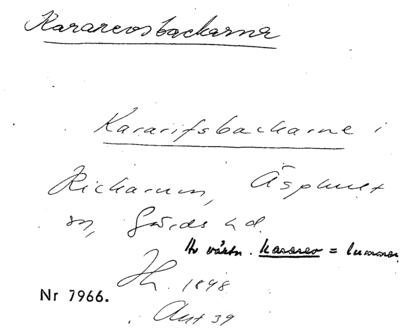 Kararevsbackarna
Kararifsbackarne i
Rickarum, Äsphult
sn, Gärds hd.
Hr växtn. kararev = lummer
Hr. 1898
Nr 7966.
Ant 39